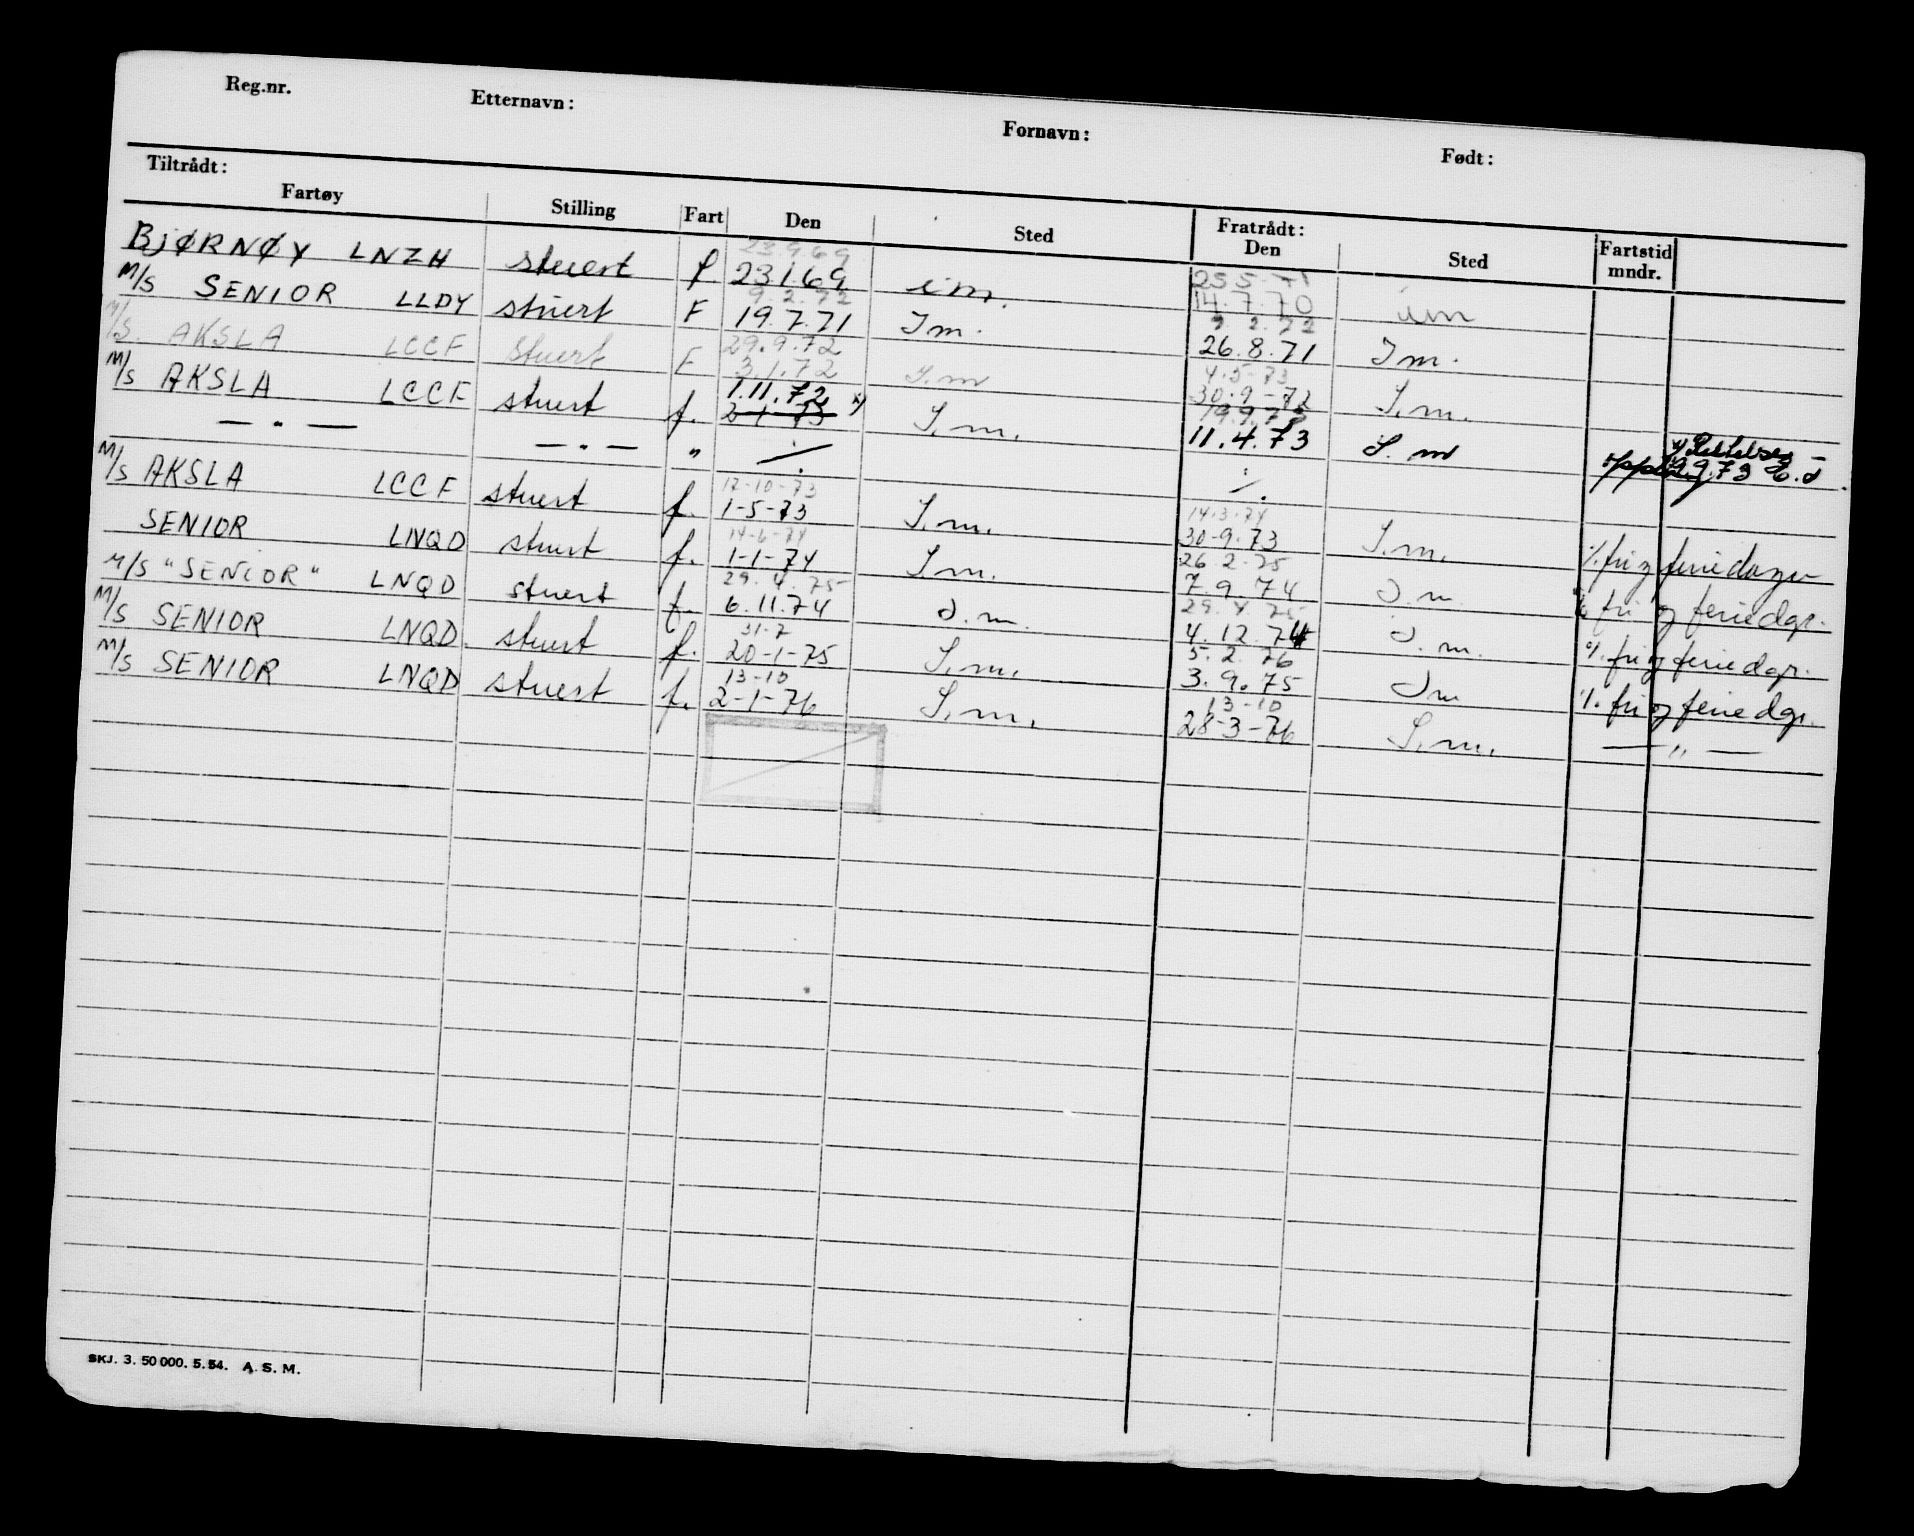 Reg.nr. Etternavn: Fornavn: Født:
Tiltrådt: Fratrådt:
Fartøy Stilling Fart Den Sted Den Sted Fartstid mndr.
23.9.69 25.5.71
BJØRNØY LNZH stuert f. 23.1.69 im. 14.7.70 im
9.2.72 9.2.72
M/S SENIOR LLDY stuert F 19.7.71 Im. 26.8.71 Im.
29.9.72 4.5-73
M/S. AKSLA LCCF stuert F 3.1.72 I.m 30.9-72 I.m.
1.11.72 x) 19.9.73
M/S AKSLA LCCF stuert f. 2-1-73 I.m. 11.4.73 I.m
— " — — " — " ./. ./.
17-10-73 14.3.74
M/S AKSLA LCCF stuert f. 1-5-73 I.m. 30-9.73 I.m. ./. fri og feriedager
14-6-74 26.2.75
SENIOR LNQD stuert f. 1-1-74 I.m. 7.9.74 I.m. ./. fri og feriedgr.
29.4.75 29.4.75
M/S "SENIOR" LNQD stuert f. 6.11.74 I.m. 4.12.74 I.m. ./. fri og feriedgr.
31-7 5.2.76
M/S SENIOR LNQD stuert f. 20-1-75 I.m. 3.9.75 Im ./. fri og feriedgr.
13-10 13-10
M/S SENIOR LNQD stuert f. 2-1-76 I.m. 28-3-76 I.m. — " —
SKJ. 3. 50 000. 5. 54. A. S. M.